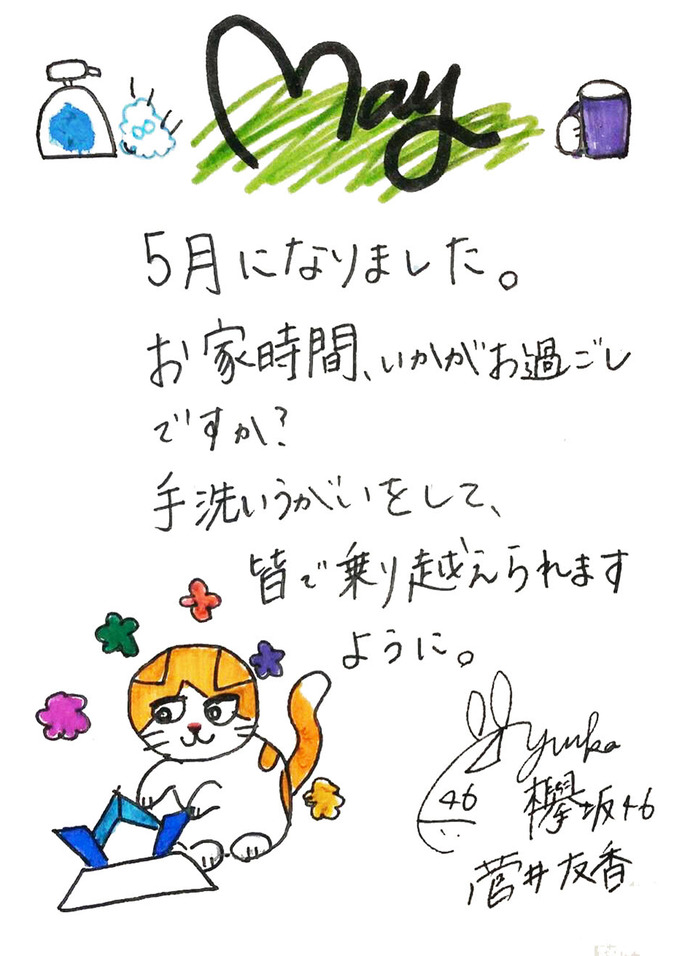 May
5月になりました。
お家時間、いかがお過ごし
ですか?
手洗いうがいをして、
皆で乗り越えられます
ように。
yuuka
46
欅坂46
菅井友香